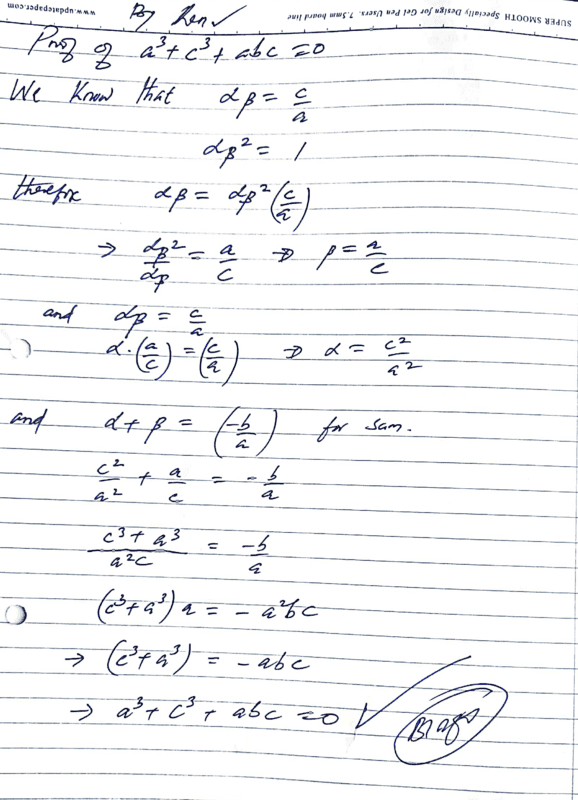 www.updatepaper.com
SUPER SMOOTH Specially Design for Gel Pen Users. 7.5mm board line
By Ken ✓
Proof of a³ + c³ + abc = 0
We know that αβ = c/a
αβ² = 1
therefore αβ = αβ² (c/a)
⇒ αβ²/αβ = a/c ⇒ β = a/c
and αβ = c/a
α·(a/c) = (c/a) ⇒ α = c²/a²
and α + β = (-b/a) for sum.
c²/a² + a/c = -b/a
c³ + a³/a²c = -b/a
(c³ + a³) a = - a²bc
→ (c³ + a³) = - abc
→ a³ + c³ + abc = 0 ✓